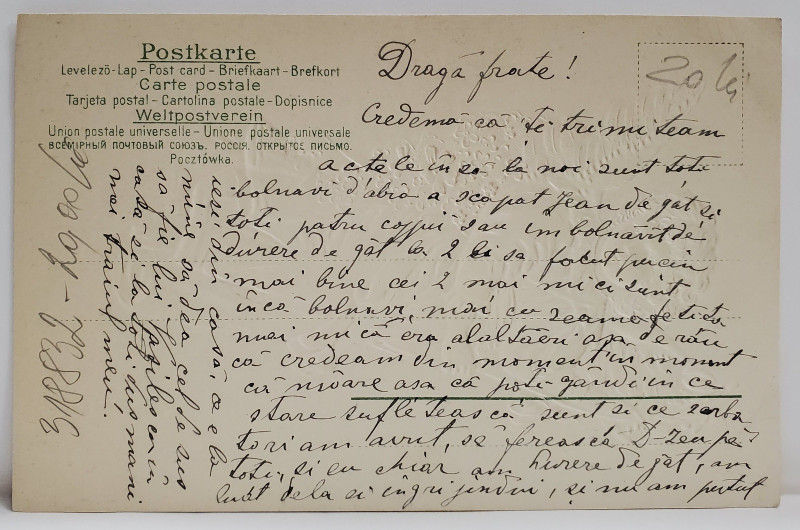 Postkarte
Levelezö-Lap - Post card - Briefkaart - Brefkort
Carte postale
Tarjeta postal - Cartolina postale - Dopisnice
Weltpostverein
Union postale universelle - Unione postale universale
ВСЕМІРНЫЙ ПОЧТОВЫЙ СОЮЗЪ. РОССІЯ. ОТКРЫТОЕ ПИСЬМО.
Pocztówka.
20 lei
Dragă frate!
Credemă că ți trimiteam
actele însă la noi sunt toți
bolnavi d'abia a scapat Jean de gât și
toți patru copii sau imbolnăvit de
durere de gât la 2 li sa făcut puțin
mai bine cei 2 mai mici sunt
încă bolnavi, mai cu seamă fetița
mai mică era alaltăeri așa de rău
că credeam din moment în moment
că moare așa că poți gândi în ce
stare sufletească sunt și ce serbă
tori am avut, să ferească D-zeu pă
toți, și eu chiar am durere de gât, am
luat dela ei îngrijindui, și nu am putut
ieși din casă, ce e la
mine să dea cel de sus
să fie lui Vasilescu în
casă și la toți dușmanii
mei traiul meu!